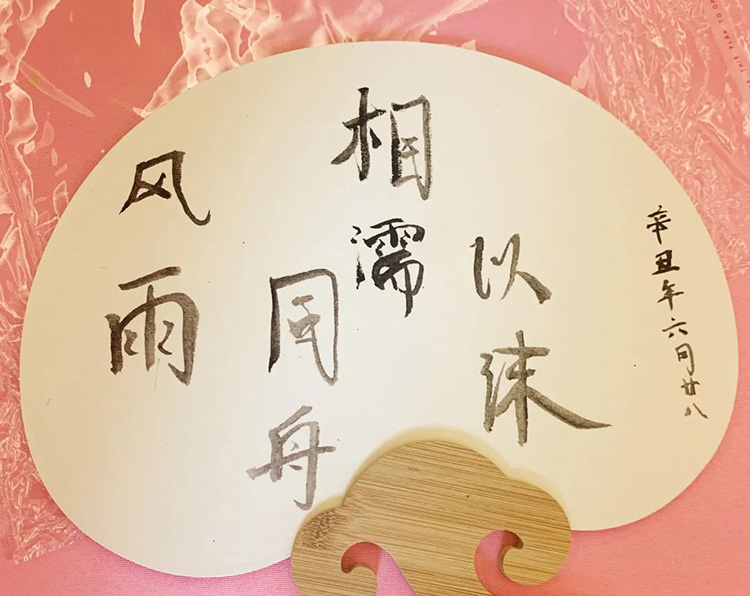 风雨
同舟
相濡
以沫
辛丑年六月廿八
THIS FLAP TO